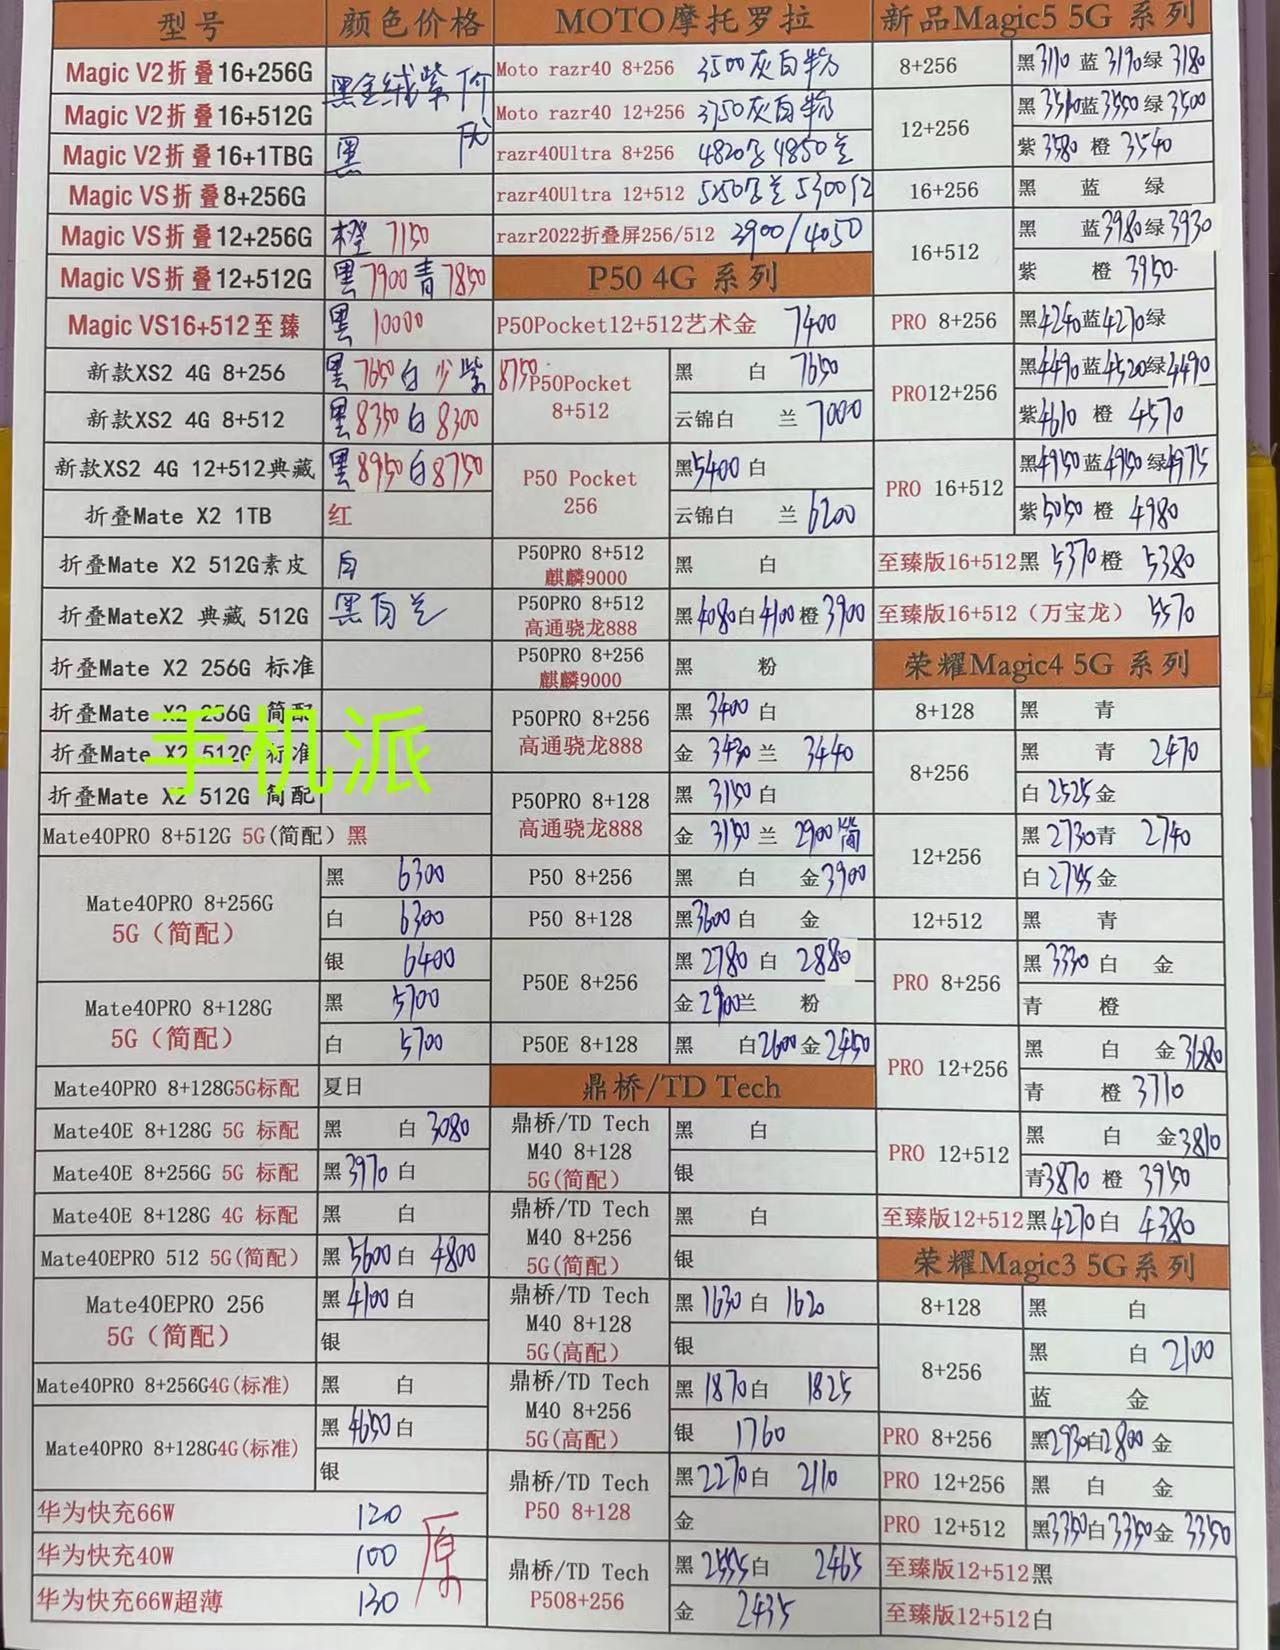 型号 颜色价格
Magic V2折叠16+256G 黑金绒紫 价
Magic V2折叠16+512G
Magic V2折叠16+1TBG 黑
Magic VS折叠8+256G
Magic VS折叠12+256G 橙 7150
Magic VS折叠12+512G 黑7900青7850
Magic VS16+512至臻 黑 10000
新款XS2 4G 8+256 黑7650白少紫8750
新款XS2 4G 8+512 黑8350白8300
新款XS2 4G 12+512典藏 黑8950白8750
折叠Mate X2 1TB 红
折叠Mate X2 512G素皮 白
折叠MateX2 典藏 512G 黑白兰
折叠Mate X2 256G 标准
折叠Mate X2 256G 简配
折叠Mate X2 512G 标准
手机派
折叠Mate X2 512G 简配
Mate40PRO 8+512G 5G(简配) 黑
Mate40PRO 8+256G
5G（简配）
黑 6300
白 6300
银 6400
Mate40PRO 8+128G
5G（简配）
黑 5700
白 5700
Mate40PRO 8+128G5G标配 夏日
Mate40E 8+128G 5G 标配 黑 白3080
Mate40E 8+256G 5G 标配 黑3970白
Mate40E 8+128G 4G 标配 黑 白
Mate40EPRO 512 5G(简配) 黑5600白4800
Mate40EPRO 256
5G（简配）
黑4100白
银
Mate40PRO 8+256G4G(标准) 黑 白
Mate40PRO 8+128G4G(标准)
黑4650白
银
华为快充66W 120
华为快充40W 100
华为快充66W超薄 130
原
MOTO摩托罗拉
Moto razr40 8+256 3500灰白粉
Moto razr40 12+256 3750灰白粉
razr40Ultra 8+256 4820 4850兰
razr40Ultra 12+512 5250 兰 5300红
razr2022折叠屏256/512 3900/4050
P50 4G 系列
P50Pocket12+512艺术金 7400
P50Pocket
8+512
黑 白 7650
云锦白 兰 7000
P50 Pocket
256
黑5400白
云锦白 兰6200
P50PRO 8+512
麒麟9000
黑 白
P50PRO 8+512
高通骁龙888
黑4080白4100橙3900
P50PRO 8+256
麒麟9000
黑 粉
P50PRO 8+256
高通骁龙888
黑 3400白
金 3430兰 3440
P50PRO 8+128
高通骁龙888
黑 3150白
金 3150兰 2900简
P50 8+256 黑 白 金3900
P50 8+128 黑3600白 金
P50E 8+256
黑2780白 2880
金2900兰 粉
P50E 8+128 黑 白2600金2450
鼎桥/TD Tech
鼎桥/TD Tech
M40 8+128
5G(简配)
黑 白
银
鼎桥/TD Tech
M40 8+256
5G(简配)
黑 白
银
鼎桥/TD Tech
M40 8+128
5G(高配)
黑1630白 1620
银
鼎桥/TD Tech
M40 8+256
5G(高配)
黑1870白 1825
银 1760
鼎桥/TD Tech
P50 8+128
黑2270白 2110
金
鼎桥/TD Tech
P508+256
黑2555白 2465
金 2435
新品Magic5 5G 系列
8+256 黑3110蓝3190绿3180
12+256
黑3510蓝3550绿3500
紫3580橙3540
16+256 黑 蓝 绿
16+512
黑 蓝3980绿3930
紫 橙 3950
PRO 8+256 黑4240蓝4270绿
PRO12+256
黑4490蓝4520绿4490
紫4610橙 4570
PRO 16+512
黑4950蓝4950绿4975
紫5050橙 4980
至臻版16+512黑 5370橙 5380
至臻版16+512（万宝龙） 5570
荣耀Magic4 5G 系列
8+128 黑 青
8+256
黑 青 2470
白2525金
12+256
黑2730青 2740
白2745金
12+512 黑 青
PRO 8+256
黑3330白 金
青 橙
PRO 12+256
黑 白 金3680
青 橙3710
PRO 12+512
黑 白 金3810
青3870橙 3950
至臻版12+512黑4270白 4380
荣耀Magic3 5G系列
8+128 黑 白
8+256
黑 白2100
蓝 金
PRO 8+256 黑2930白2800金
PRO 12+256 黑 白 金
PRO 12+512 黑3350白3350金 3350
至臻版12+512黑
至臻版12+512白